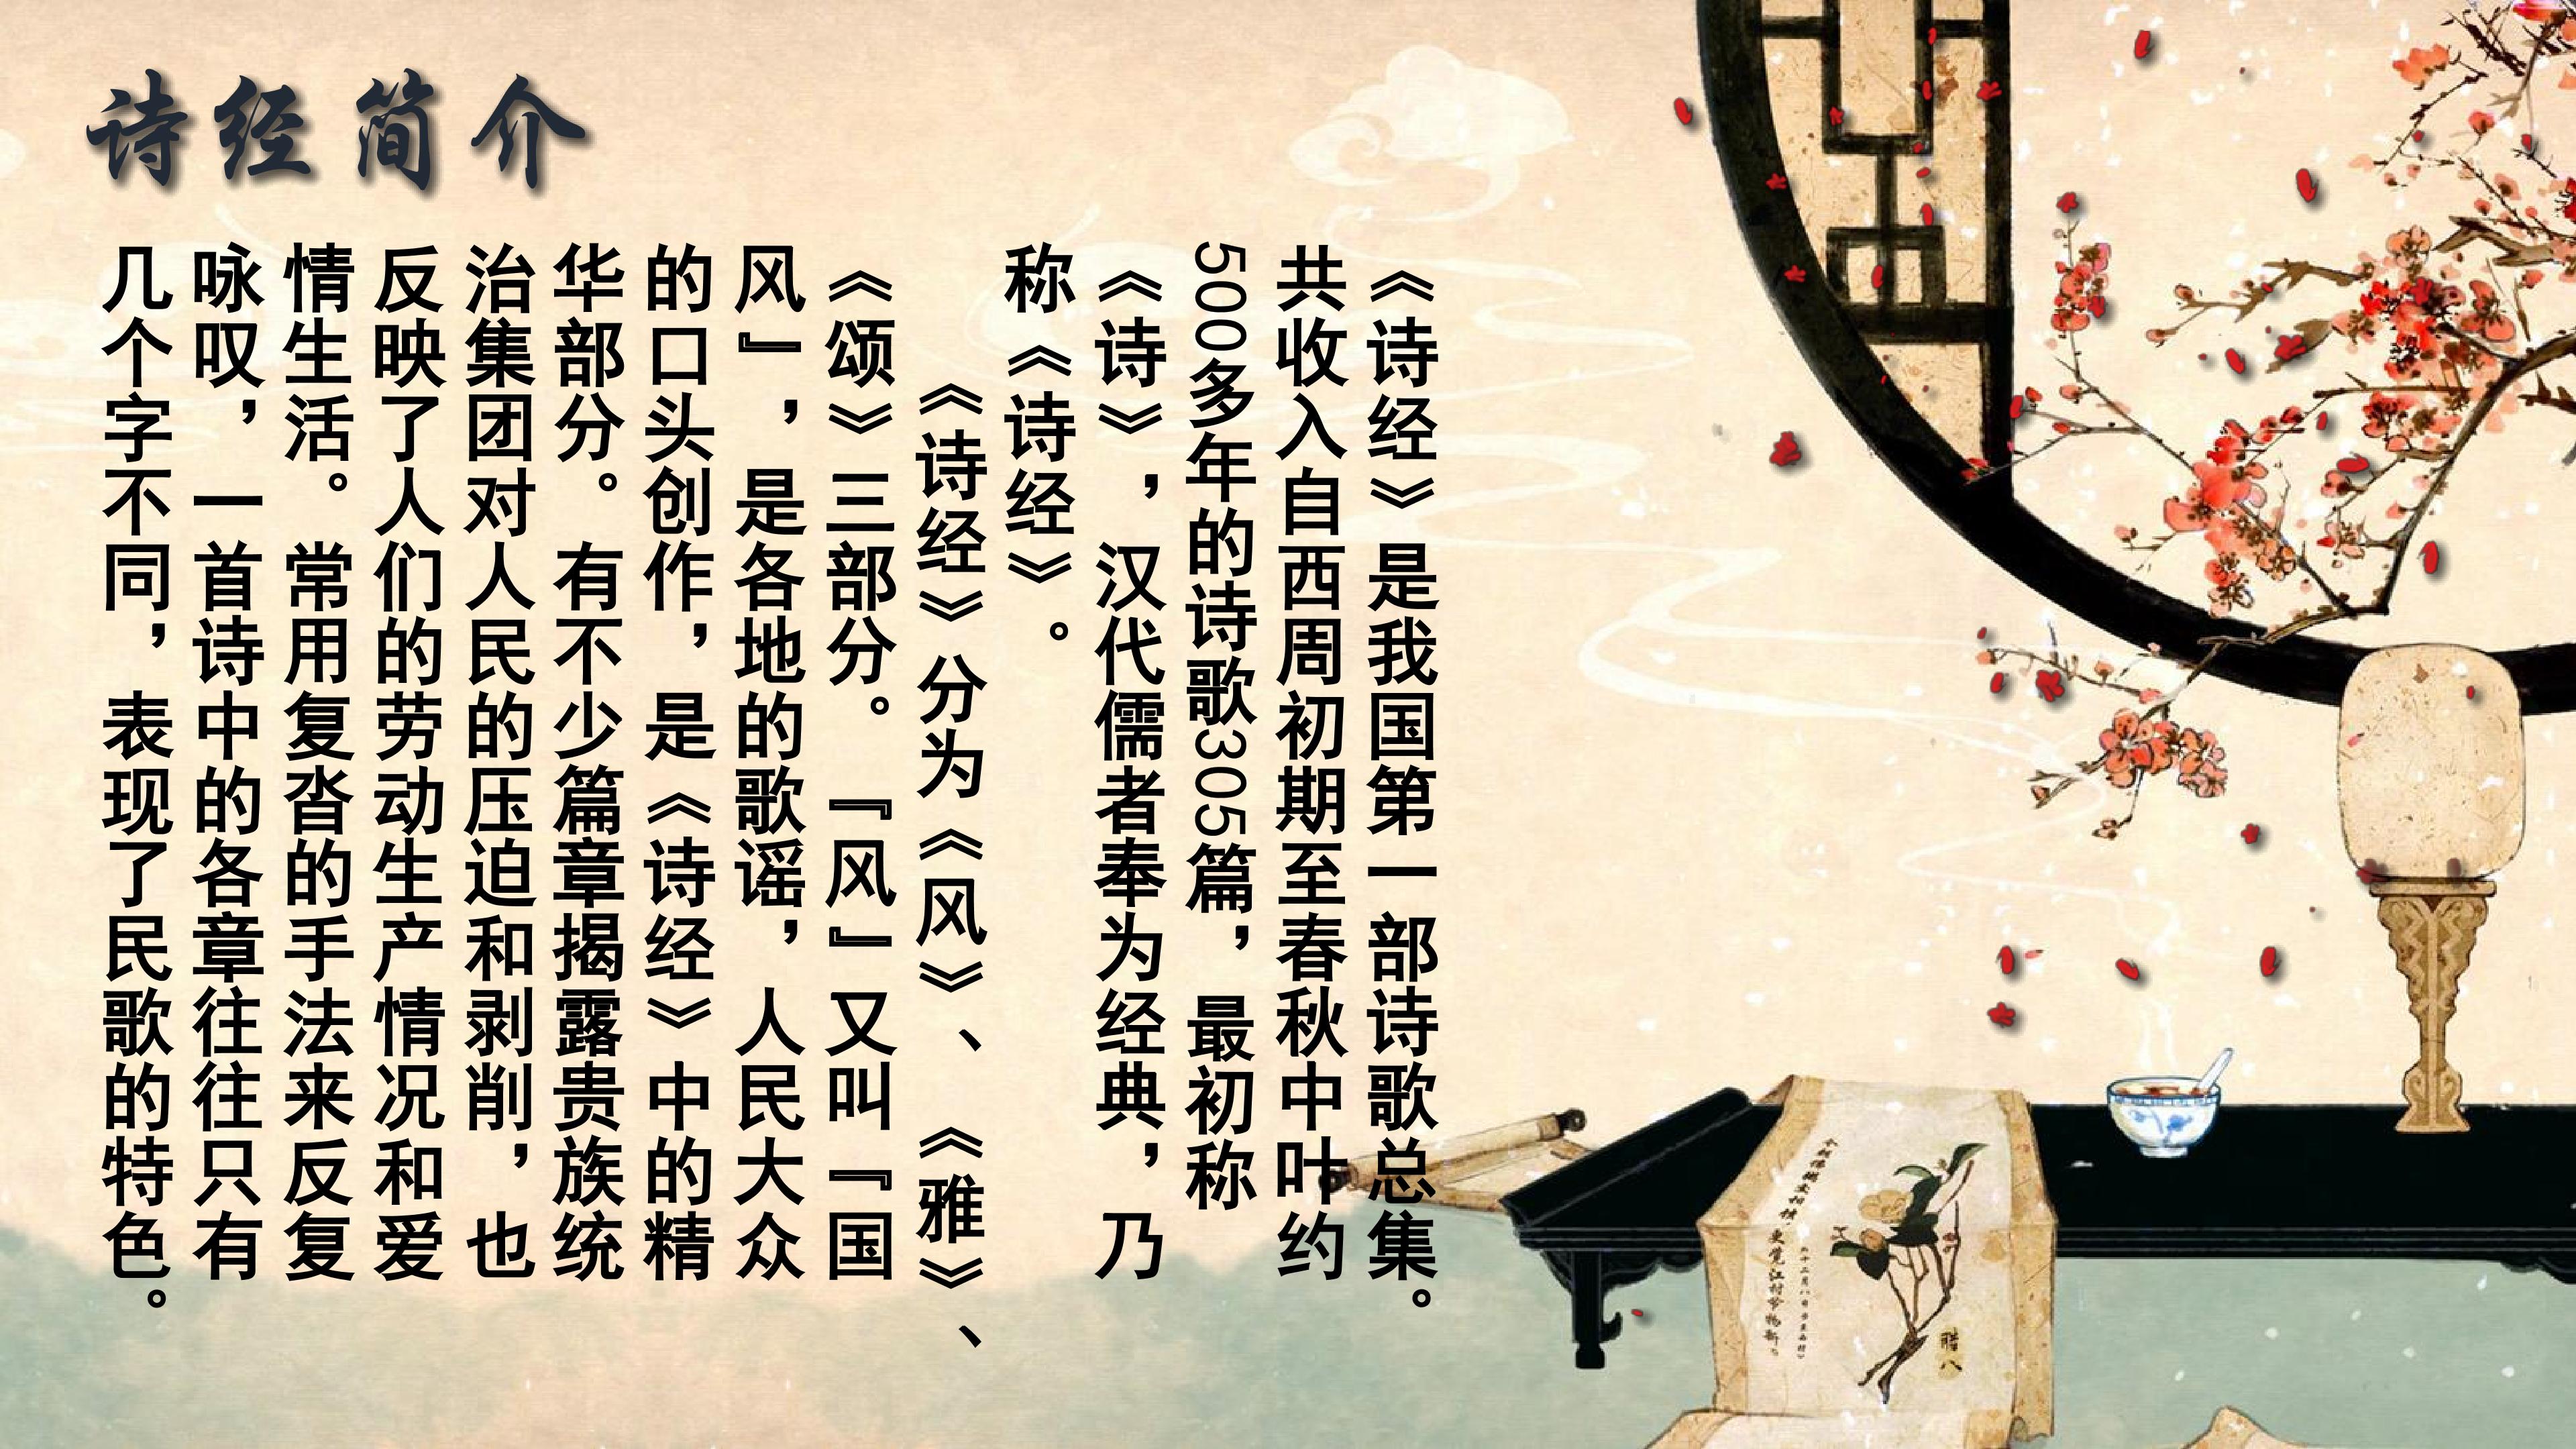 诗经简介
《诗经》是我国第一部诗歌总集。
共收入自西周初期至春秋中叶约
500多年的诗歌305篇，最初称
《诗》，汉代儒者奉为经典，乃
称《诗经》。
《诗经》分为《风》、《雅》、
《颂》三部分。『风』又叫『国
风』，是各地的歌谣，人民大众
的口头创作，是《诗经》中的精
华部分。有不少篇章揭露贵族统
治集团对人民的压迫和剥削，也
反映了人们的劳动生产情况和爱
情生活。常用复沓的手法来反复
咏叹，一首诗中的各章往往只有
几个字不同，表现了民歌的特色。
腊八